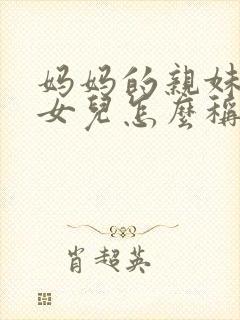 妈妈的親妹
女兒怎麼稱
肖超英